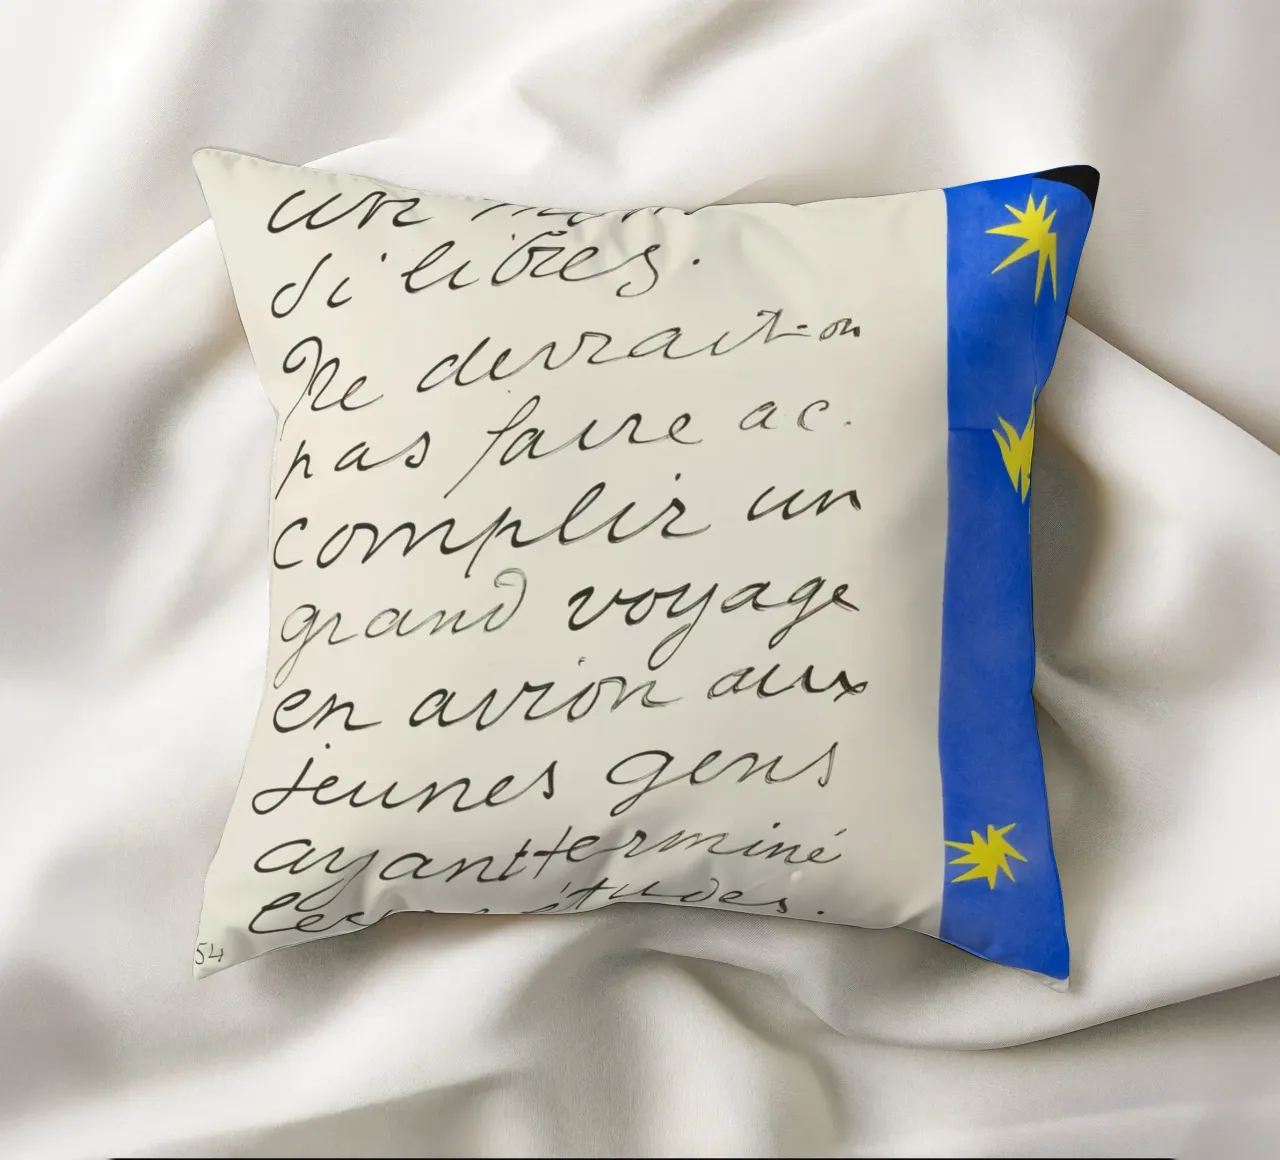 un
si libres.
Ne devrait-on
pas faire ac.
complir un
grand voyage
en avion aux
jeunes gens
ayant terminé
leurs études.
54